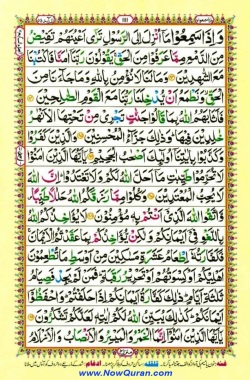 111
وَإِذَا سَمِعُوا مَا أُنْزِلَ إِلَى الرَّسُولِ تَرَى أَعْيُنَهُمْ تَفِيضُ
مِنَ الدَّمْعِ مِمَّا عَرَفُوا مِنَ الْحَقِّ يَقُولُونَ رَبَّنَا اٰمَنَّا فَاكْتُبْنَا
مَعَ الشّٰهِدِينَ وَمَا لَنَا لَا نُؤْمِنُ بِاللّٰهِ وَمَا جَاءَنَا مِنَ
الْحَقِّ وَنَطْمَعُ أَنْ يُدْخِلَنَا رَبُّنَا مَعَ الْقَوْمِ الصّٰلِحِينَ
فَأَثَابَهُمُ اللّٰهُ بِمَا قَالُوا جَنّٰتٍ تَجْرِي مِنْ تَحْتِهَا الْأَنْهٰرُ
خٰلِدِينَ فِيهَا وَذٰلِكَ جَزَاءُ الْمُحْسِنِينَ وَالَّذِينَ كَفَرُوا
وَكَذَّبُوا بِاٰيٰتِنَا أُولٰئِكَ أَصْحٰبُ الْجَحِيمِ يٰأَيُّهَا الَّذِينَ اٰمَنُوا
لَا تُحَرِّمُوا طَيِّبٰتِ مَا أَحَلَّ اللّٰهُ لَكُمْ وَلَا تَعْتَدُوا إِنَّ اللّٰهَ
لَا يُحِبُّ الْمُعْتَدِينَ وَكُلُوا مِمَّا رَزَقَكُمُ اللّٰهُ حَلٰلًا طَيِّبًا
وَاتَّقُوا اللّٰهَ الَّذِي أَنْتُمْ بِهِ مُؤْمِنُونَ لَا يُؤَاخِذُكُمُ اللّٰهُ
بِاللَّغْوِ فِي أَيْمَانِكُمْ وَلٰكِنْ يُؤَاخِذُكُمْ بِمَا عَقَّدْتُمُ الْأَيْمَانَ
فَكَفَّارَتُهُ إِطْعَامُ عَشَرَةِ مَسٰكِينَ مِنْ أَوْسَطِ مَا تُطْعِمُونَ
أَهْلِيكُمْ أَوْ كِسْوَتُهُمْ أَوْ تَحْرِيرُ رَقَبَةٍ فَمَنْ لَمْ يَجِدْ فَصِيَامُ
ثَلٰثَةِ أَيَّامٍ ذٰلِكَ كَفَّارَةُ أَيْمَانِكُمْ إِذَا حَلَفْتُمْ وَاحْفَظُوا
أَيْمَانَكُمْ كَذٰلِكَ يُبَيِّنُ اللّٰهُ لَكُمْ اٰيٰتِهِ لَعَلَّكُمْ تَشْكُرُونَ
يٰأَيُّهَا الَّذِينَ اٰمَنُوا إِنَّمَا الْخَمْرُ وَالْمَيْسِرُ وَالْأَنْصَابُ وَالْأَزْلَامُ
www.NowQuran.com